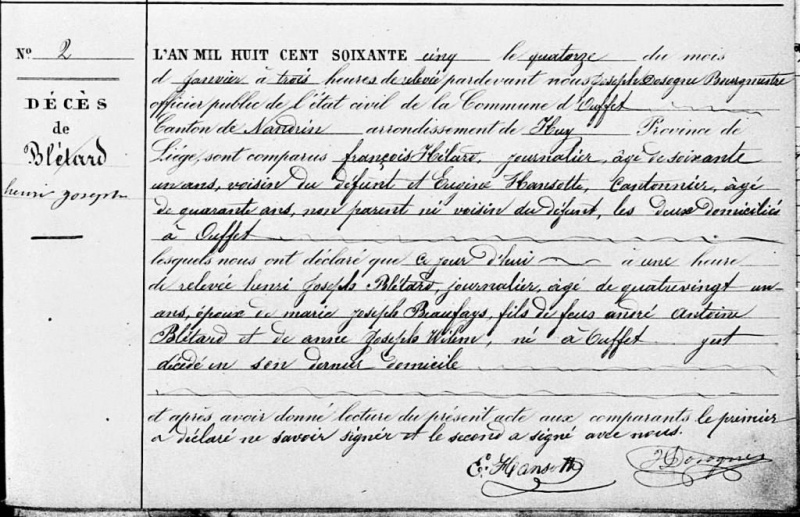 N° 2
DÉCÈS
de
Blétard
henri Joseph
L'AN MIL HUIT CENT SOIXANTE cinq le quatorze du mois
d Janvier à trois heures de relevée pardevant nous Joseph Dosogne Bourgmestre
officier public de l'état civil de la Commune d'Ouffet
Canton de Nandrin arrondissement de Huy Province de
Liége, sont comparus françois Hilard, journalier, âgé de soixante
un ans, voisin du défunt et Eugène Hansotte, Cantonnier, âgé
de quarante ans, non parent ni voisin du défunt, les deux domiciliés
à Ouffet
lesquels nous ont déclaré que ce jour d'hui à une heure
de relevée henri Joseph Blétard, journalier, âgé de quatrevingt un
ans, époux de marie Joseph Beaufays, fils de feus andré Antoine
Blétard et de anne Joseph Wilm, né à Ouffet y est
décédé en son dernier domicile
et après avoir donné lecture du présent acte aux comparants le premier
a déclaré ne savoir signer et le second a signé avec nous.
E. Hansotte
J Dosogne